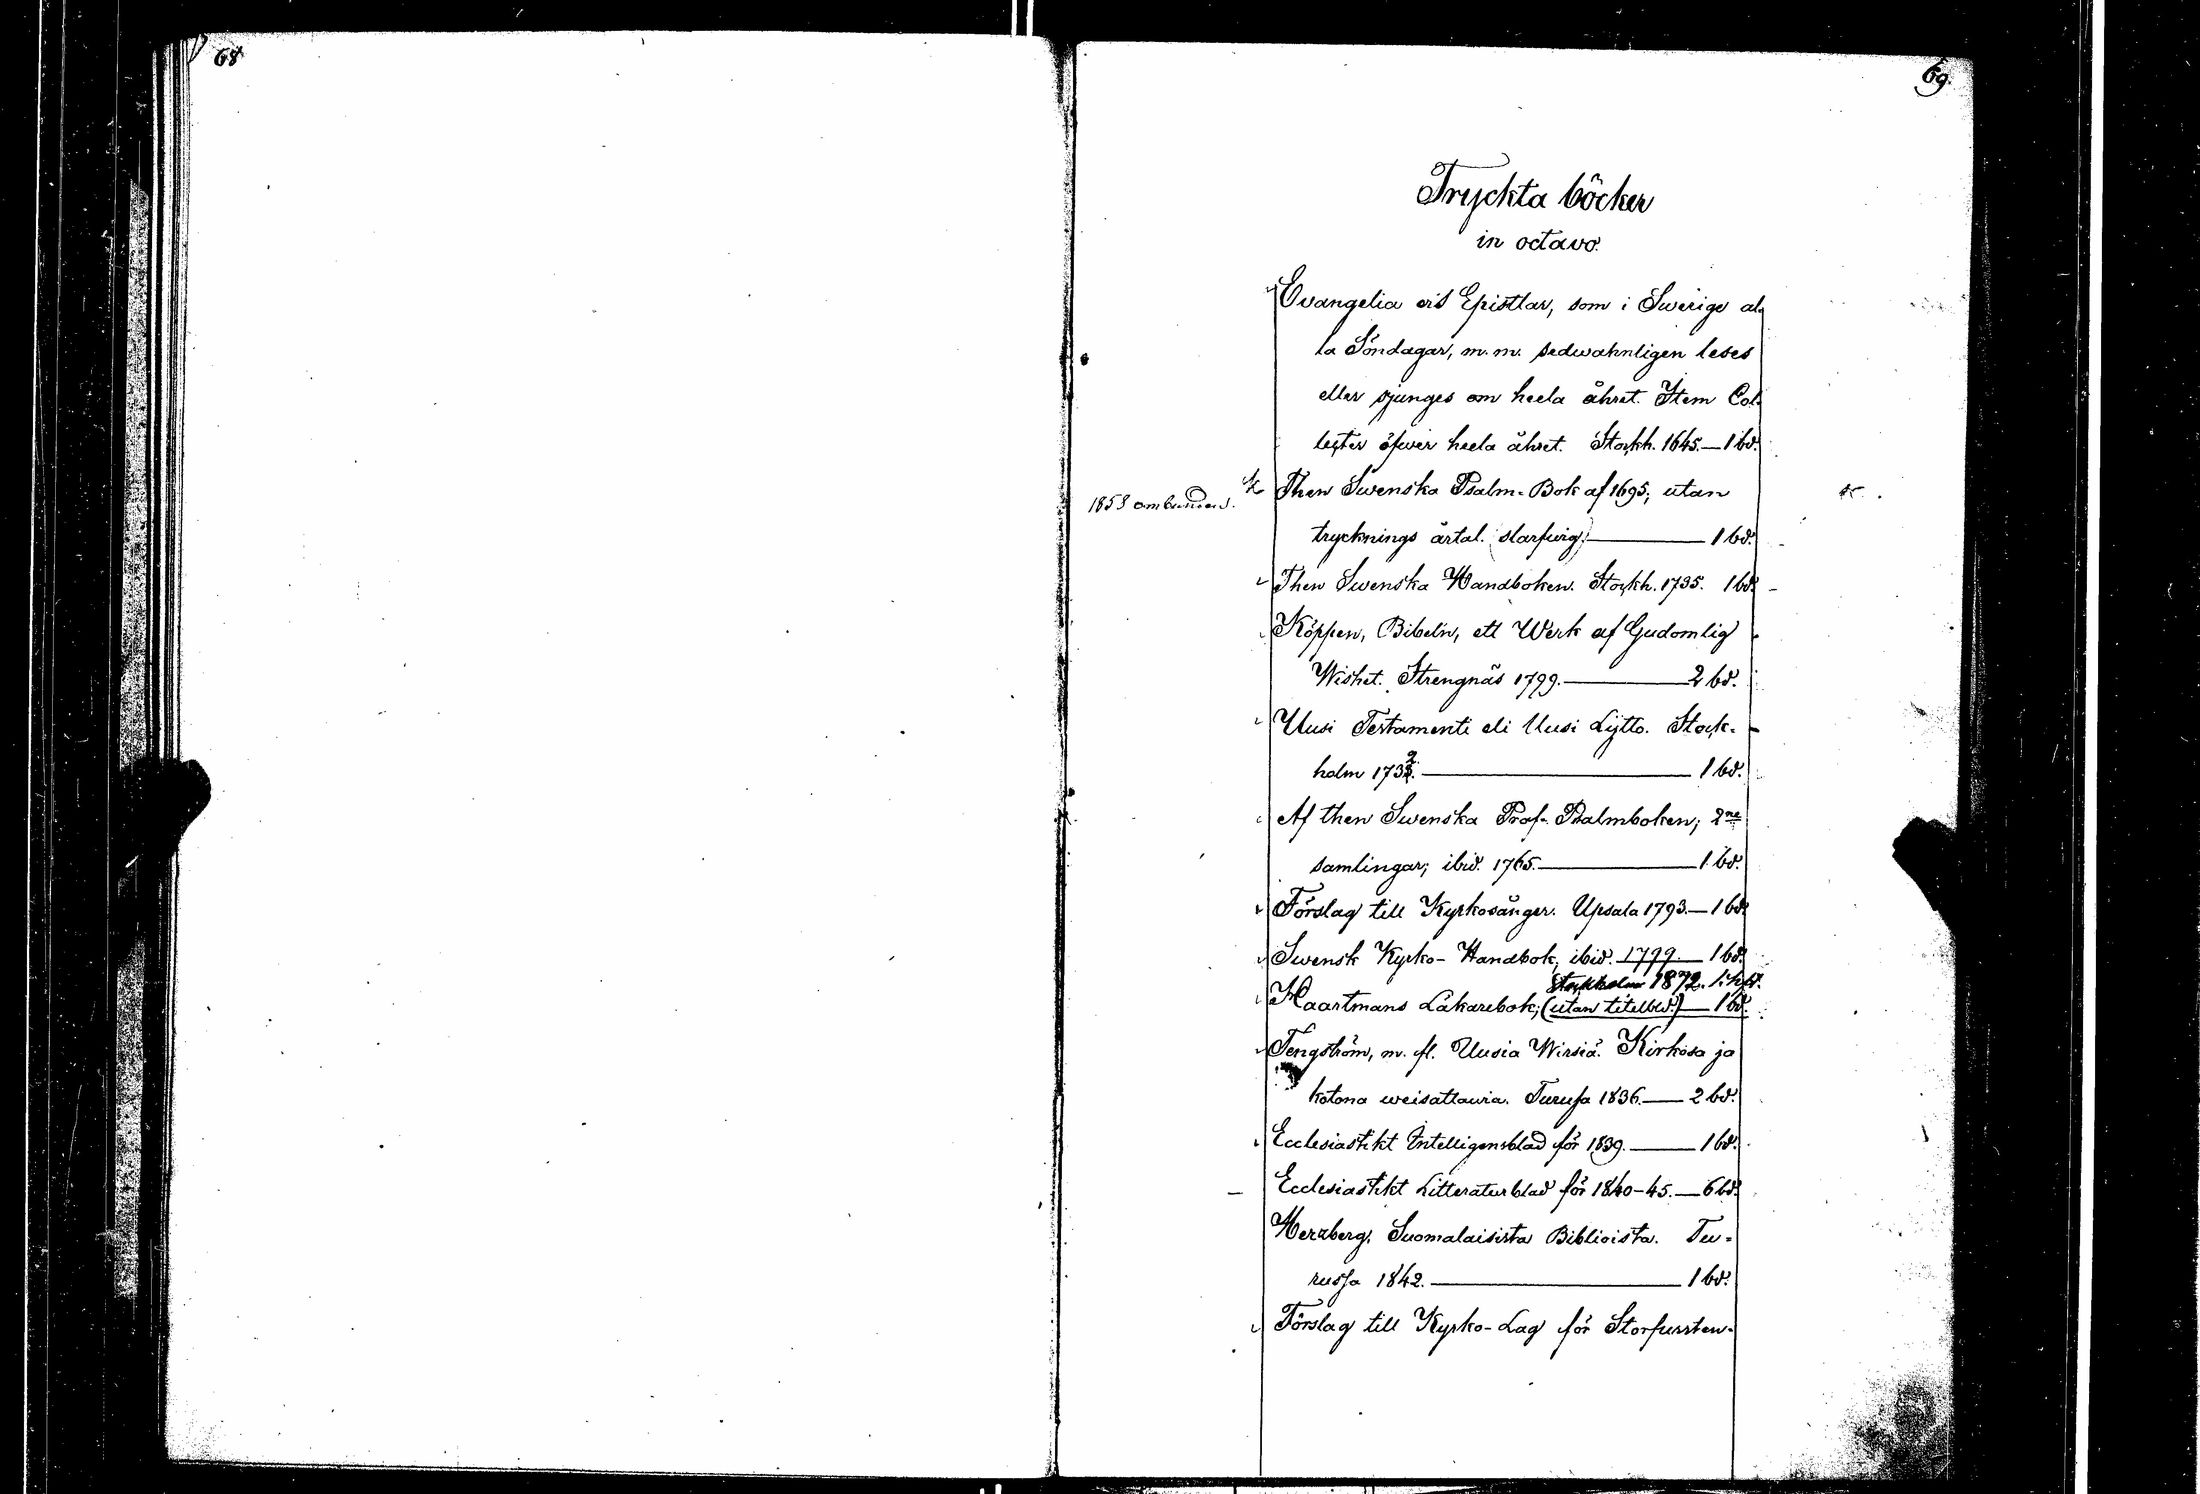 68
69.
Tryckta böcker
in octavo.
Evangelia och Epistlar, som i Swerige al-
la Söndagar, m.m. sedwahnligen leses
eller sjunges om heela åhret. Item Col-
lecter öfwer heela åhret. Stockh. 1645. — 1 bd.
Then Swenska Psalm-Bok af 1695; utan
1858 ombunden.
trycknings årtal. (slarfwig) — 1 bd.
Then Swenska Handboken. Stockh. 1735. 1 bd.
Köppen, Bibeln, ett Werk af Gudomlig
Wishet. Strengnäs 1799. — 2 bd.
Uusi Testamenti eli Uusi Lijtto. Stock-
holm 1732. — 1 bd.
Af then Swenska Prof-Psalmboken; 2ne
samlingar; ibid. 1765. — 1 bd.
Förslag till Kyrkosånger. Upsala 1793. — 1 bd.
Swensk Kyrko-Handbok; ibid. 1799. — 1 bd.
Stockholm 1872. 1 hft.
Haartmans Läkarebok; (utan titelbl.) — 1 bd.
Tengström, m. fl. Uusia Wirsiä. Kirkosa ja
kotona weisattawia. Turusa 1836. — 2 bd.
Ecclesiastikt Intelligensblad för 1839. — 1 bd.
Ecclesiastikt Litteraturblad för 1840-45. — 6 bd.
Herzberg, Suomalaisista Biblioista. Tu-
russa 1842. — 1 bd.
Förslag till Kyrko-Lag för Storfursten-